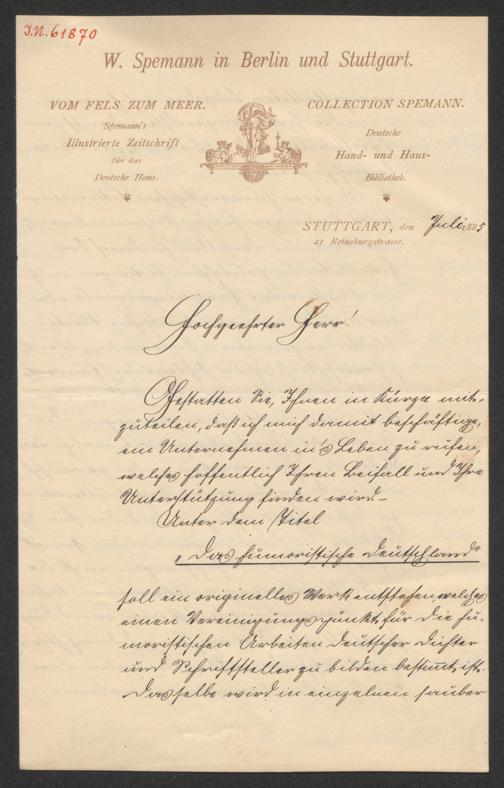 J.N. 61870
W. Spemann in Berlin und Stuttgart.
VOM FELS ZUM MEER.
Spemann's
Illustrierte Zeitschrift
für das
Deutsche Haus.
COLLECTION SPEMANN.
Deutsche
Hand- und Haus-
Bibliothek.
STUTTGART, den Juli 1885
21 Reinsburgstrasse.
Hochgeehrter Herr!
Gestatten Sie, Ihnen in Kürze mit-
zuteilen, daß ich mich damit beschäftige,
ein Unternehmen in's Leben zu rufen,
welches hoffentlich Ihren Beifall und Ihre
Unterstützung finden wird.—
Unter dem Titel
„Das humoristische Deutschland“
soll ein originelles Werk entstehen, welches
einen Vereinigungspunkt für die hu-
moristischen Arbeiten deutscher Dichter
und Schriftsteller zu bilden bestimmt ist.
Dasselbe wird in einzelnen sauber